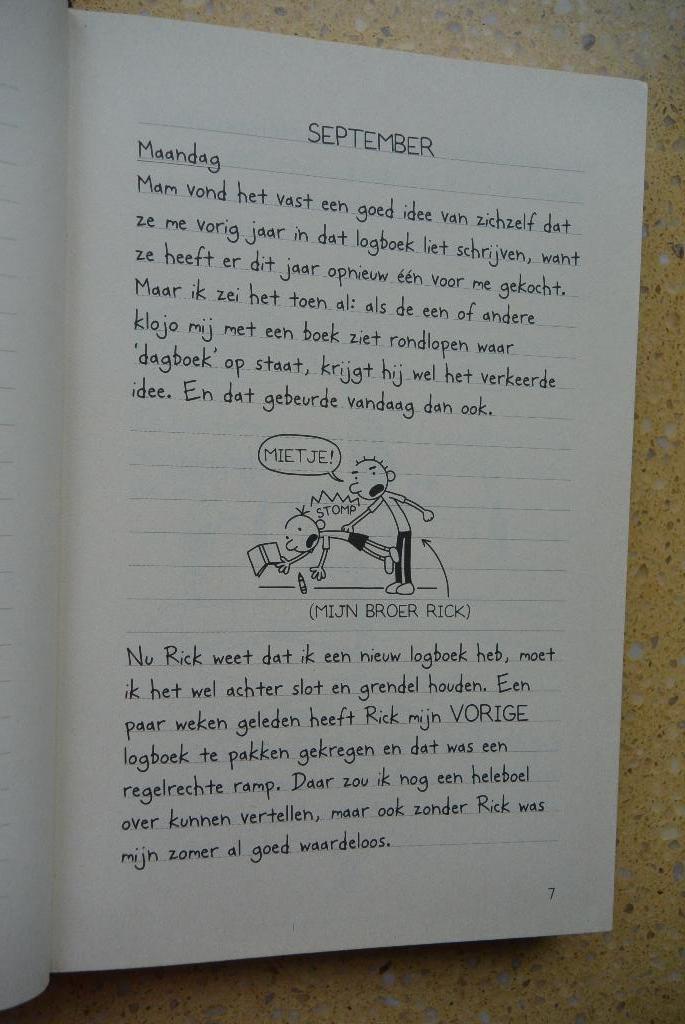 SEPTEMBER
Maandag
Mam vond het vast een goed idee van zichzelf dat
ze me vorig jaar in dat logboek liet schrijven, want
ze heeft er dit jaar opnieuw één voor me gekocht.
Maar ik zei het toen al: als de een of andere
klojo mij met een boek ziet rondlopen waar
'dagboek' op staat, krijgt hij wel het verkeerde
idee. En dat gebeurde vandaag dan ook.
MIETJE!
STOMP
(MIJN BROER RICK)
Nu Rick weet dat ik een nieuw logboek heb, moet
ik het wel achter slot en grendel houden. Een
paar weken geleden heeft Rick mijn VORIGE
logboek te pakken gekregen en dat was een
regelrechte ramp. Daar zou ik nog een heleboel
over kunnen vertellen, maar ook zonder Rick was
mijn zomer al goed waardeloos.
7